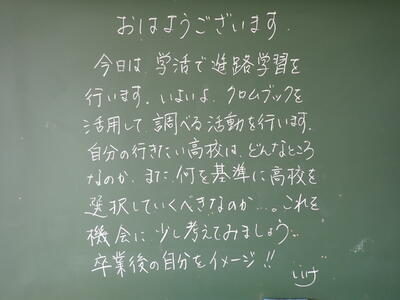 おはようございます.
今日は、学活で進路学習を
行います。いよいよ、クロムブックを
活用して、調べる活動を行います.
自分の行きたい高校は、どんなところ
なのか、また、何を基準に高校を
選択していくべきなのか…。これを
機会に、少し考えてみましょう.
卒業後の自分をイメージ!!